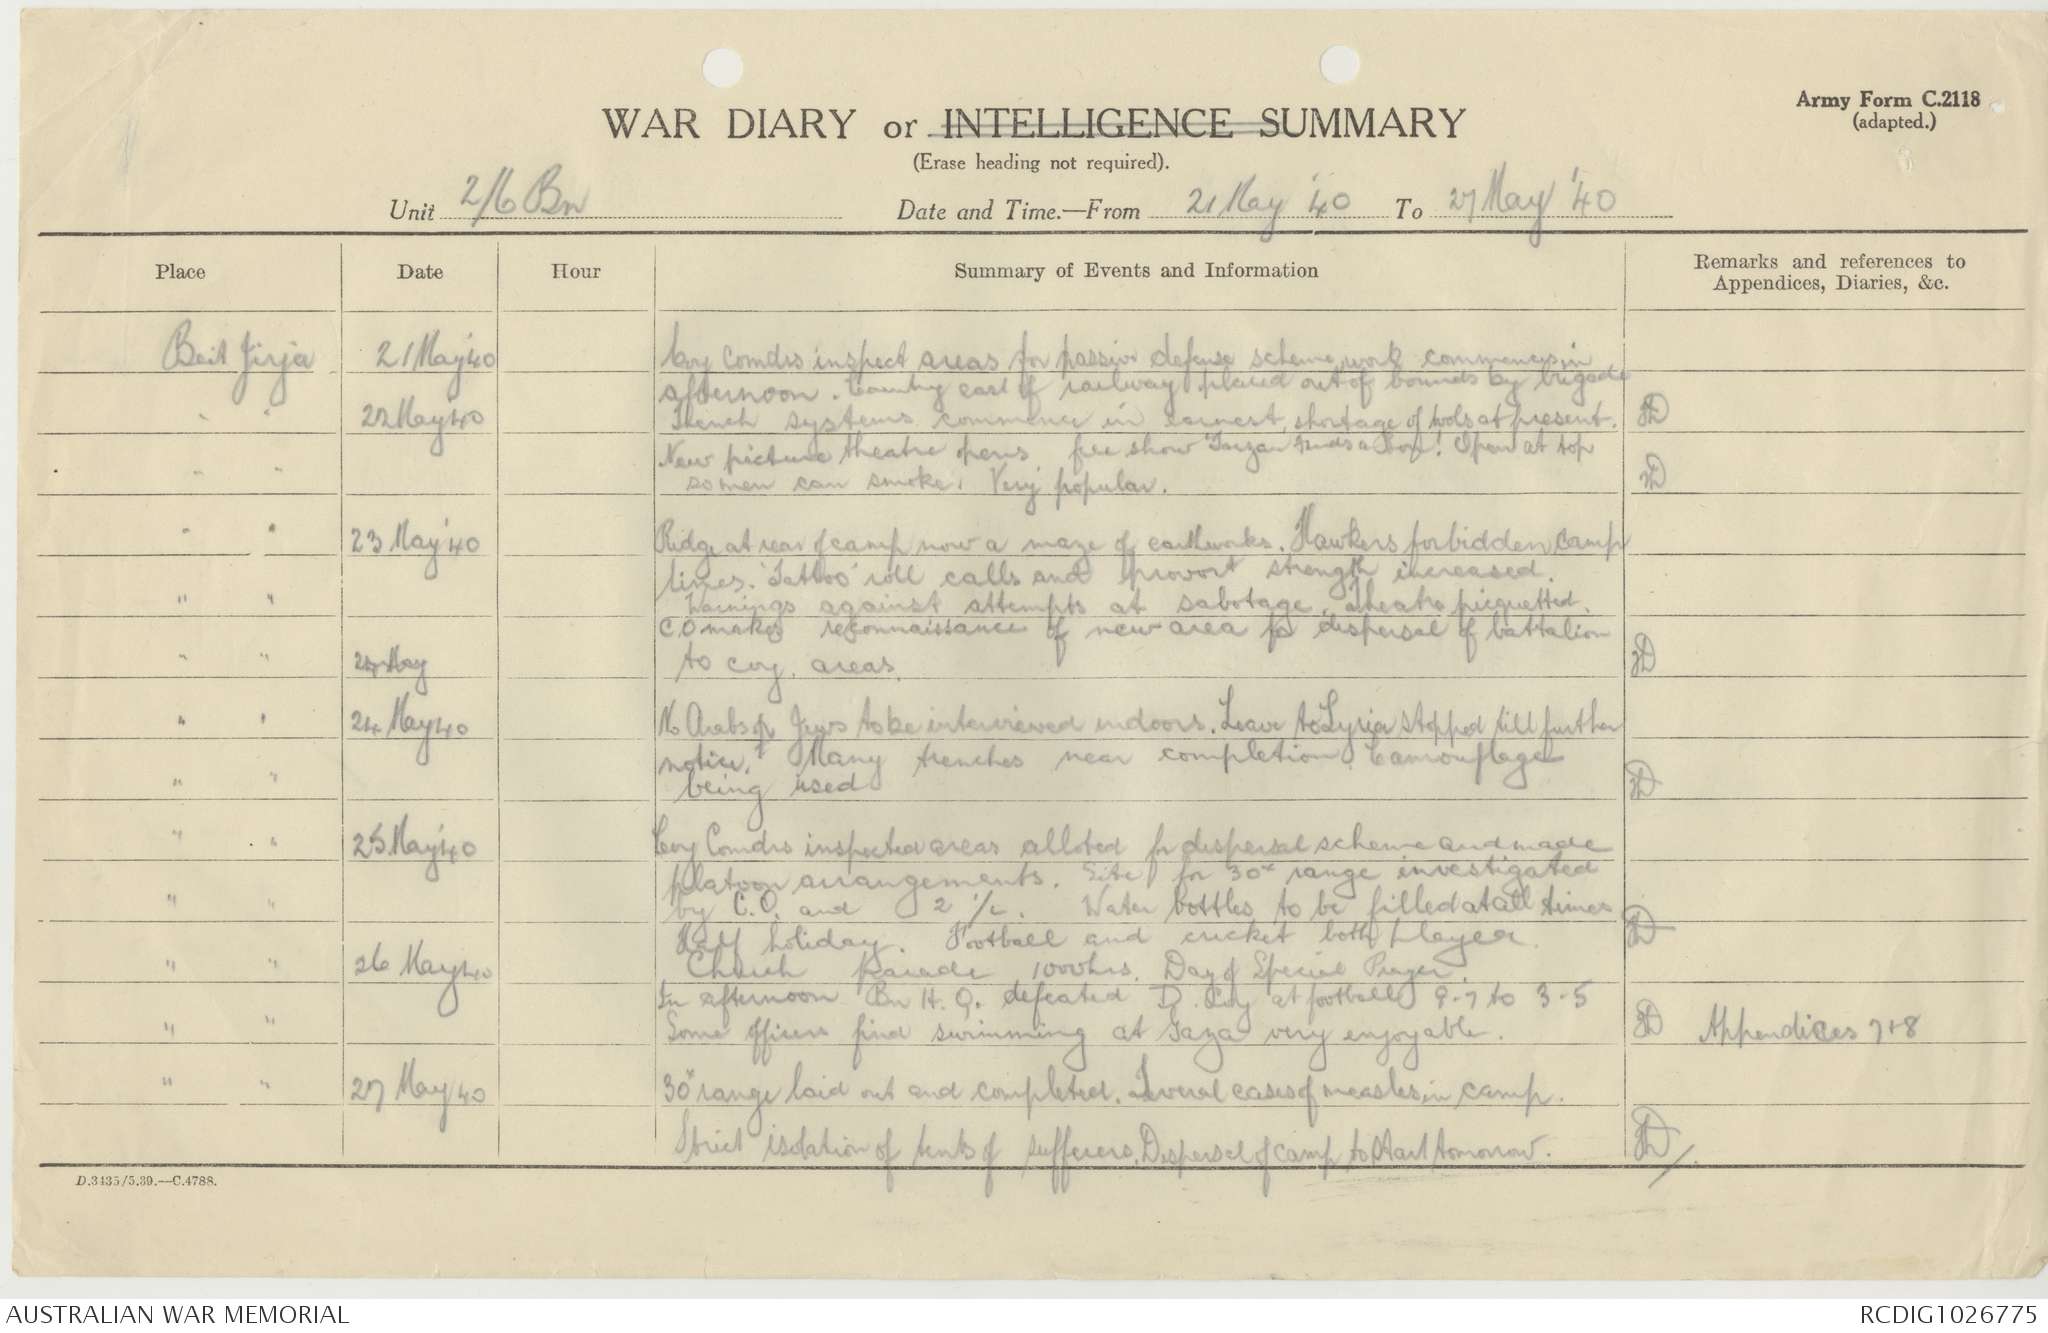 Army Form C.2118
(adapted.)
WAR DIARY or INTELLIGENCE SUMMARY
(Erase heading not required).
Unit 2/6 Bn Date and Time.—From 21 May '40 To 27 May '40
Place Date Hour Summary of Events and Information Remarks and references to
Appendices, Diaries, &c.
Beit Jirja 21 May '40 Coy Comdrs inspect areas for passive defense scheme, work commences in
afternoon. Country east of railway placed out of bounds by brigade
" " 22 May 40 Trench systems commence in earnest, shortage of tools at present.
New picture theatre opens free show 'Tarzan Finds a Son'! Open at top
" " so men can smoke. Very popular.
" " 23 May '40 Ridge at rear of camp now a maze of earthworks. Hawkers forbidden camp
lines. 'Tattoo' roll calls and provost strength increased.
" " Warnings against attempts at sabotage. Theatre picquetted.
C.O makes reconnaissance of new area for dispersal of battalion
" " 24 May to coy. areas.
" " 24 May 40 No Arabs or Jews to be interviewed indoors. Leave to Syria stopped till further
notice. Many trenches near completion. Camouflage
" " being used
" " 25 May '40 Coy Comdrs inspected areas alloted for dispersal scheme and made
platoon arrangements. Site for 30x range investigated
" " by C.O. and 2 i/c. Water bottles to be filled at all times
Half holiday. Football and cricket both played.
" " 26 May 40 Church Parade 1000hrs. Day of Special Prayer.
In afternoon Bn H.Q. defeated D. Coy at football 9-7 to 3-5
" " Some officers find swimming at Gaza very enjoyable. Appendices 7+8
" " 27 May 40 30x range laid out and completed. Several cases of measles in camp.
Strict isolation of tents of sufferers. Dispersal of camp to start tomorrow.
D.3435/5.39.—C.4788.
AUSTRALIAN WAR MEMORIAL RCDIG1026775